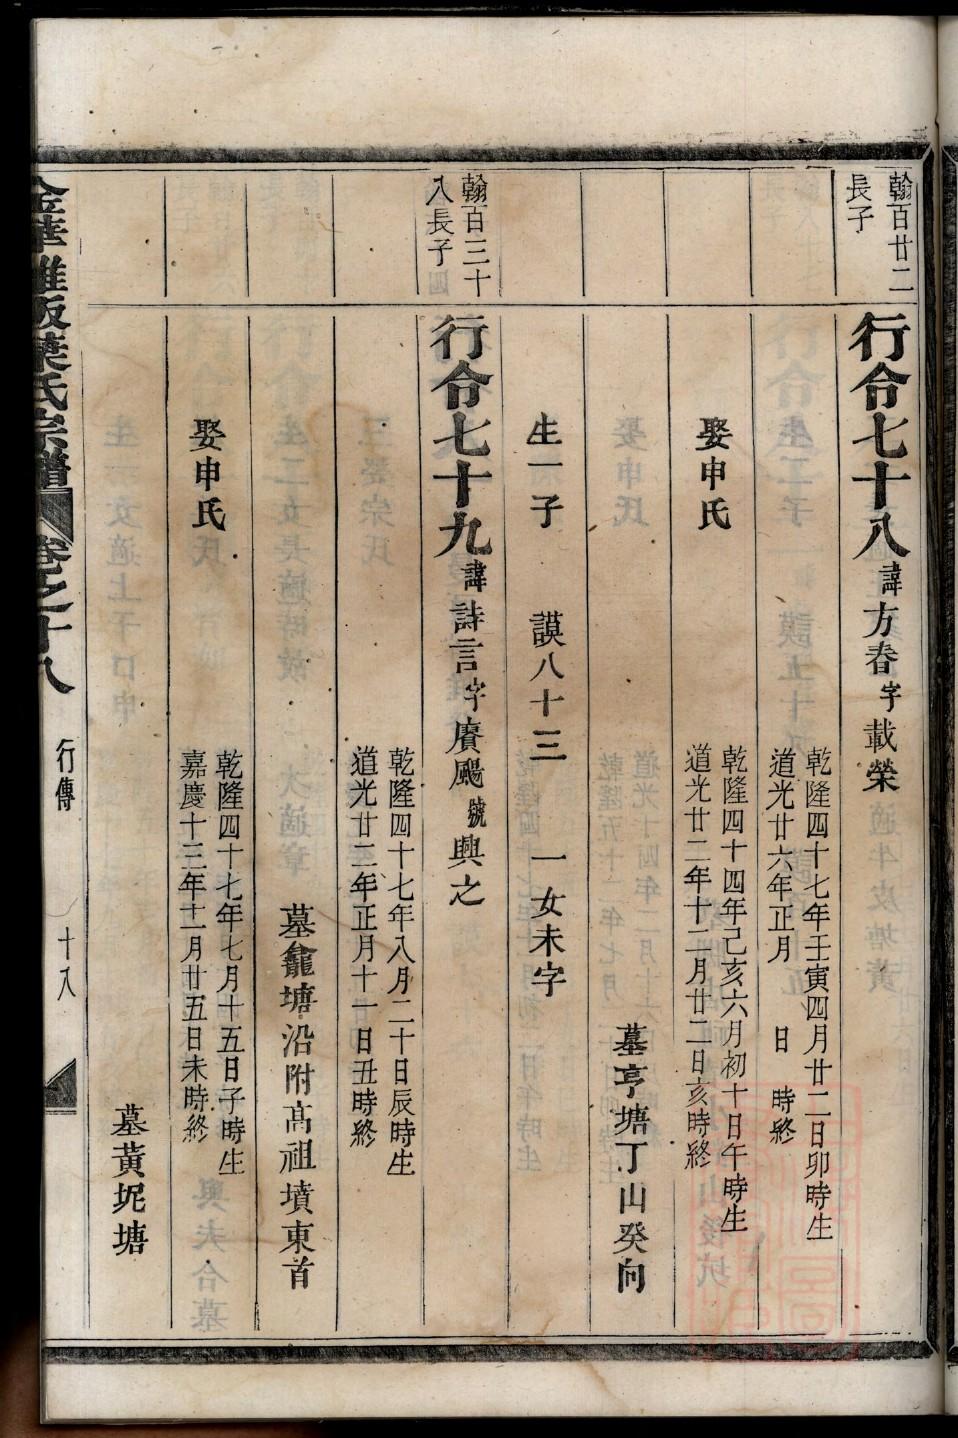 翰百廿二
長子
行令七十八諱方春字載榮
乾隆四十七年壬寅四月廿二日卯時生
道光廿六年正月 日 時終
娶申氏
乾隆四十四年己亥六月初十日午時生
道光廿二年十二月廿二日亥時終
墓亨塘丁山癸向
生一子 謨八十三 一女未字
翰百三十
八長子
行令七十九諱詩言字賡颺號興之
乾隆四十七年八月二十日辰時生
道光廿二年正月十一日丑時終
墓龕塘沿附高祖墳東首
娶申氏
乾隆四十七年七月十五日子時生
嘉慶十三年十一月廿五日未時終
墓黃坭塘
金華 葉氏宗譜 卷之十八 行傳 十八